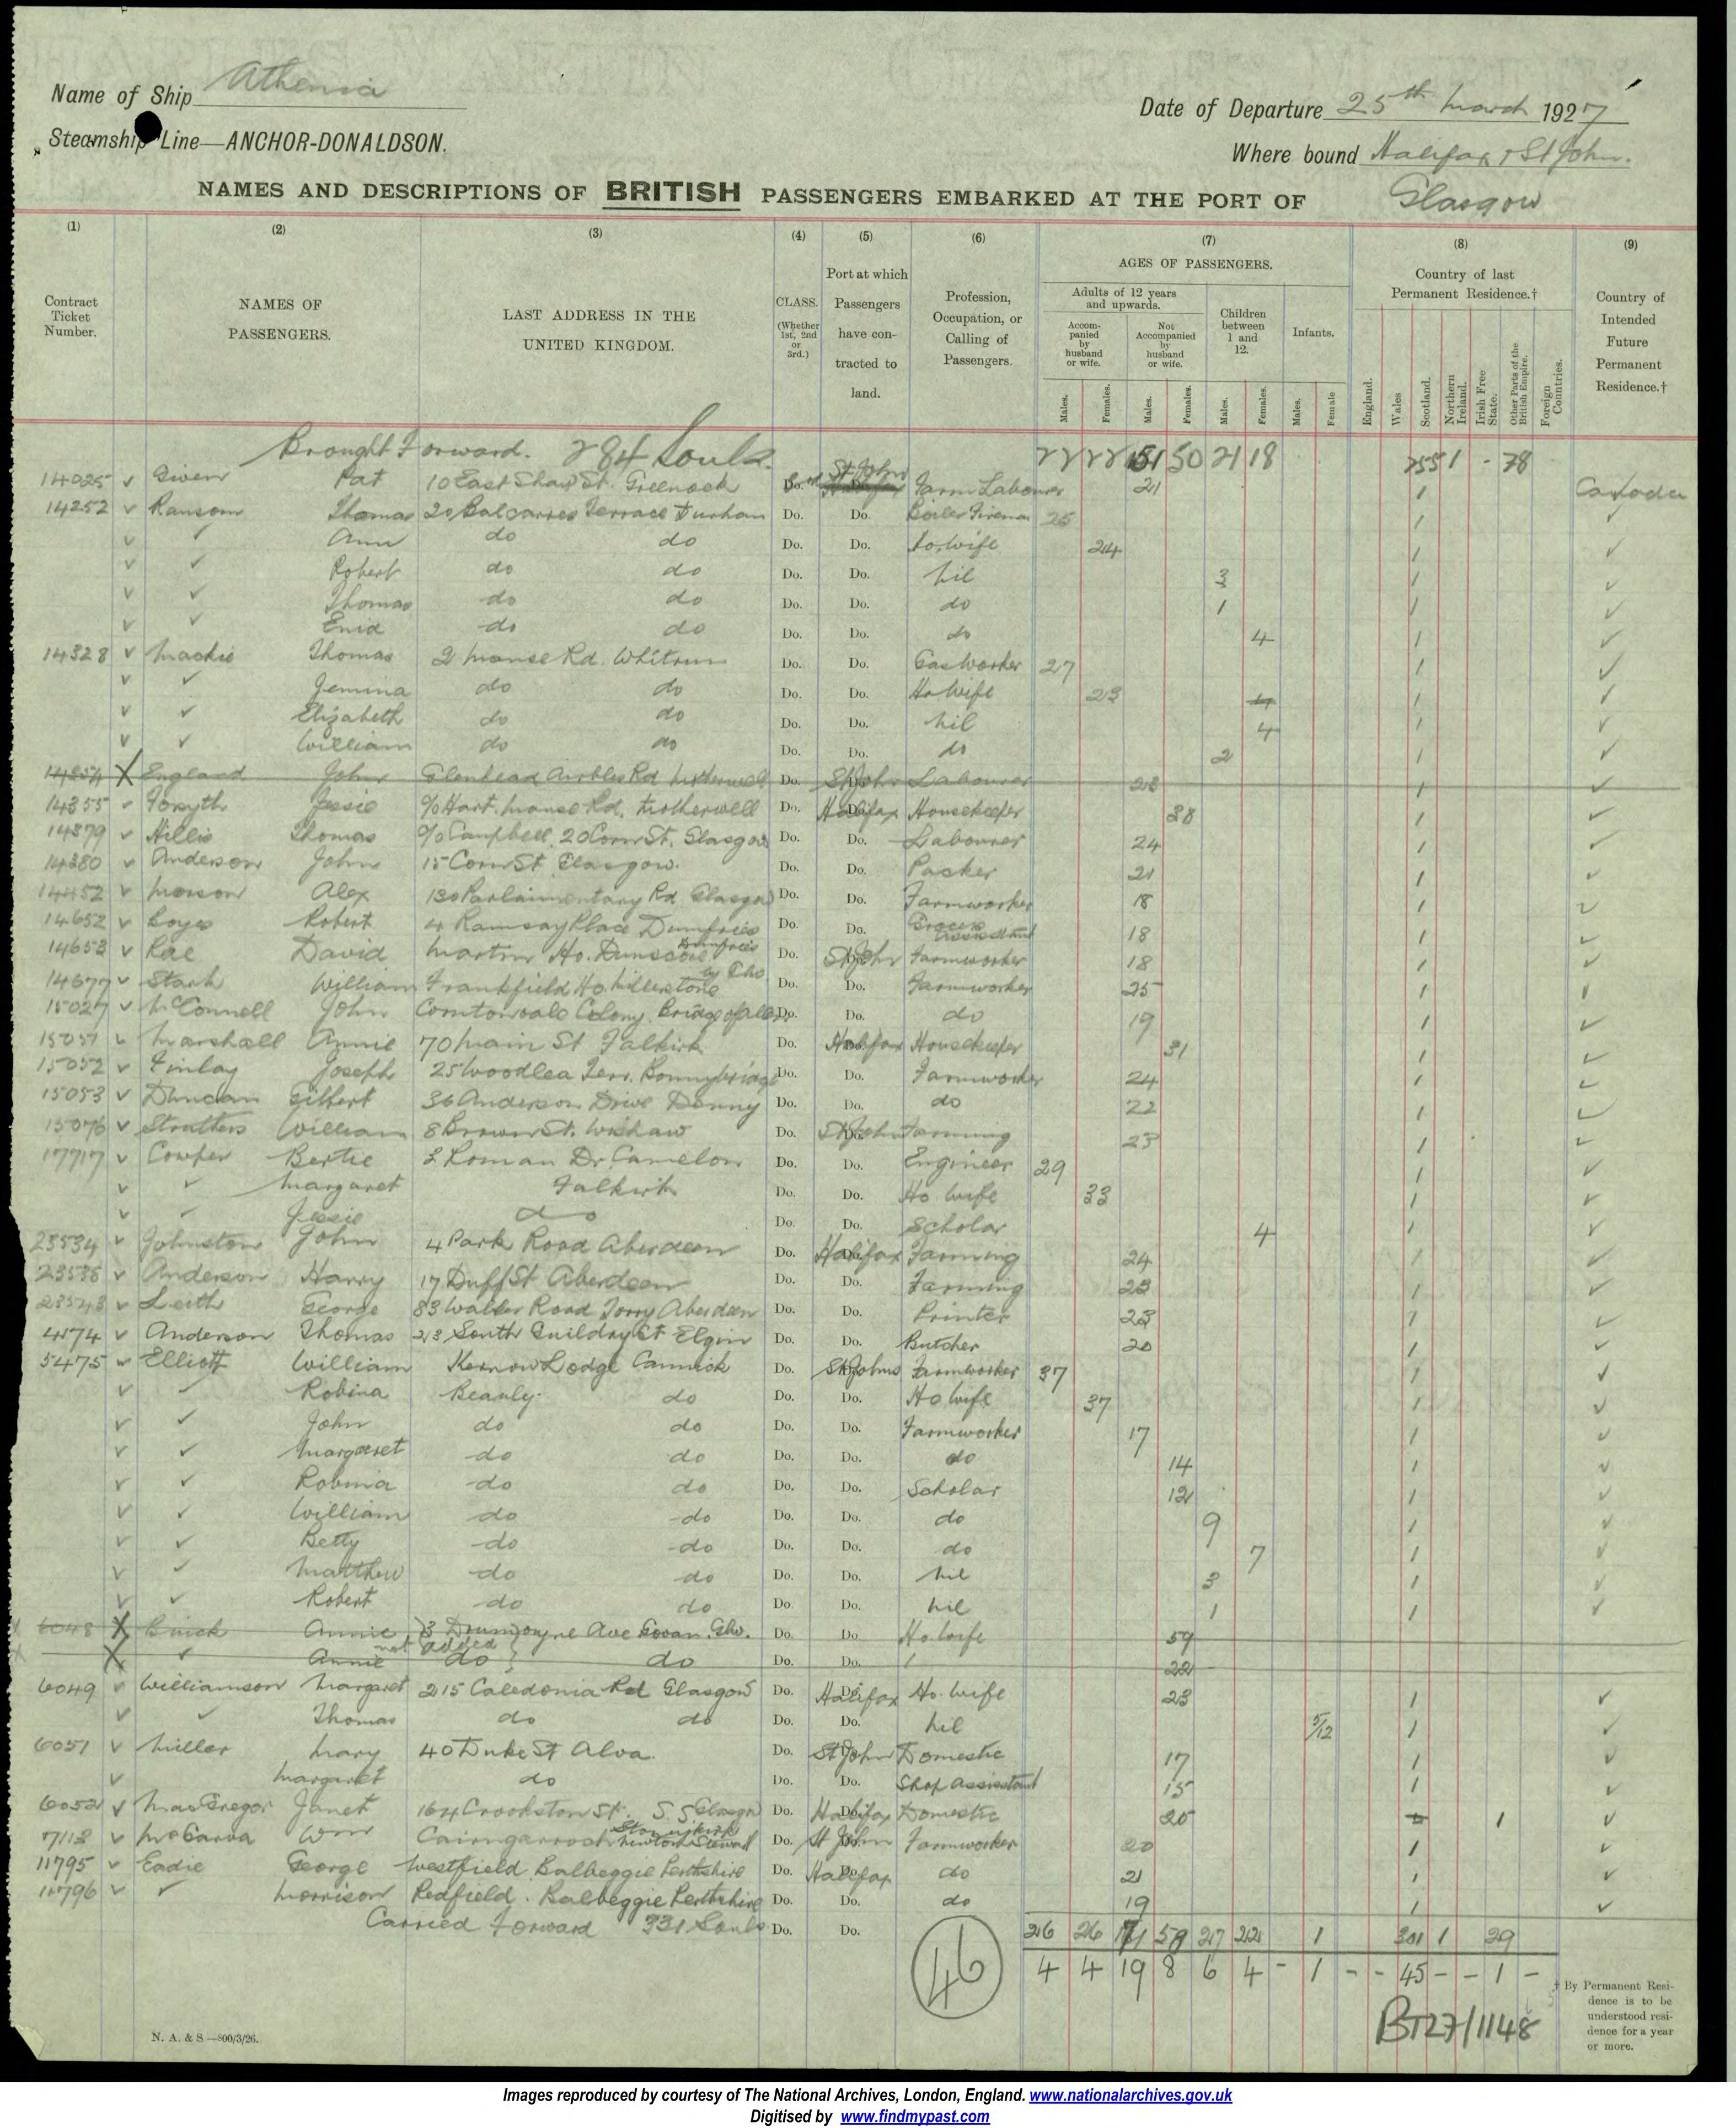 Name of Ship Athenia
Date of Departure 25th March 1927
Steamship Line—ANCHOR-DONALDSON.
Where bound Halifax & St John.
NAMES AND DESCRIPTIONS OF BRITISH PASSENGERS EMBARKED AT THE PORT OF Glasgow
(1) (2) (3) (4) (5) (6) (7) (8) (9)
Contract Ticket Number.
NAMES OF PASSENGERS.
LAST ADDRESS IN THE UNITED KINGDOM.
CLASS. (Whether 1st, 2nd or 3rd.)
Port at which Passengers have contracted to land.
Profession, Occupation, or Calling of Passengers.
AGES OF PASSENGERS.
Adults of 12 years and upwards.
Accompanied by husband or wife.
Not Accompanied by husband or wife.
Children between 1 and 12.
Infants.
Males. Females. Males. Females. Males. Females. Males. Female
Country of last Permanent Residence.†
England. Wales Scotland. Northern Ireland. Irish Free State. Other Parts of the British Empire. Foreign Countries.
Country of Intended Future Permanent Residence.†
Brought Forward. 284 Souls 22 22 151 50 21 18 255 1 - 28
14025 Given Pat 10 East Shaw St. Greenock St John Farm Labourer 21 1 Canada
14252 Ransom Thomas 20 Balcarres Terrace Durham Do. Do. Boiler Fireman 25 1
Ann do do Do. Do. Ho. wife 24 1
Robert do do Do. Do. nil 3 1
Thomas do do Do. Do. do 1 1
Enid do do Do. Do. do 4 1
14328 Mackie Thomas 2 Manse Rd. Whitburn Do. Do. Gas Worker 27 1
Jemina do do Do. Do. Ho wife 23 1
Elizabeth do do Do. Do. nil 4 1
William do do Do. Do. do 2 1
14354 X England John Glenhead Airbles Rd Motherwell Do. St John Labourer 28 1
14355 Forsyth Jessie c/o Hart. Manse Rd. Motherwell Do. Halifax Housekeeper 38 1
14379 Hillis Thomas c/o Campbell, 20 Corn St. Glasgow Do. Do. Labourer 24 1
14380 Anderson John 15 Corn St Glasgow. Do. Do. Packer 21 1
14452 Morson Alex 130 Parlaimentary Rd Glasgow Do. Do. Farmworker 18 1
14652 Boyes Robert 4 Ramsay Place Dumfries Do. Do. Grocers Assistant 18 1
14653 Rae David Martin Ho. Dunscore Dumfries Do. St John Farmworker 18 1
14677 Stark William Frankfield Ho. Millerstone by Glw Do. Do. Farmworker 25 1
15027 McConnell John Corntonvale Colony. Bridge of Allan Do. Do. do 19 1
15051 Marshall Annie 70 Main St Falkirk Do. Halifax Housekeeper 31 1
15052 Finlay Joseph 25 Woodlea Terr. Bonnybridge Do. Do. Farmworker 24 1
15053 Duncan Gilbert 36 Anderson Drive Denny Do. Do. do 22 1
15076 Struthers William 8 Brown St. Wishaw Do. St John Farming 23 1
17717 Cowper Bertie 2 Roman Dr. Camelon Do. Do. Engineer 29 1
Margaret Falkirk Do. Do. Ho wife 33 1
Jessie do Do. Do. Scholar 4 1
23534 Johnston John 4 Park Road Aberdeen Do. Halifax Farming 24 1
23535 Anderson Harry 17 Duff St Aberdeen Do. Do. Farming 23 1
23543 Leith George 83 Walker Road Torry Aberdeen Do. Do. Printer 23 1
4174 Anderson Thomas 213 South Guildry St Elgin Do. Do. Butcher 20 1
5475 Elliott William Kernow Lodge Cannick Do. St Johns Farmworker 37 1
Robina Beauly. do Do. Do. Ho wife 37 1
John do do Do. Do. Farmworker 17 1
Margaret do do Do. Do. do 14 1
Robina do do Do. Do. Scholar 12 1
William do do Do. Do. do 9 1
Betty do do Do. Do. do 7 1
Matthew do do Do. Do. nil 3 1
Robert do do Do. Do. nil 1 1
6048 X Annie 3 Drumoyne Ave Govan. Glw. Do. Do. Ho. wife 59
X Annie not added do do Do. Do. 22
6049 Williamson Margaret 215 Caledonia Rd Glasgow Do. Halifax Ho. wife 23 1
Thomas do do Do. Do. nil 5/12 1
6051 Miller Mary 40 Duke St Alva. Do. St John Domestic 17 1
Margaret do Do. Do. Shop Assistant 15 1
6052 MacGregor Janet 164 Crookston St. S.S Glasgow Do. Halifax Domestic 20 1
7113 McGarva Wm Cairngarroch Stoneykirk Newton Stewart Do. St John Farmworker 20 1
11795 Eadie George Westfield Balbeggie Perthshire Do. Halifax do 21 1
11796 Morrison Redfield. Balbeggie Perthshire Do. Do. do 19 1
Carried Forward 331 Souls Do. Do. 26 26 171 58 27 22 1 301 1 29
46 4 4 19 8 6 4 - 1 - - 45 - - 1 -
BT27/1148
† By Permanent Residence is to be understood residence for a year or more.
N. A. & S.—800/3/26.
Images reproduced by courtesy of The National Archives, London, England. www.nationalarchives.gov.uk
Digitised by www.findmypast.com